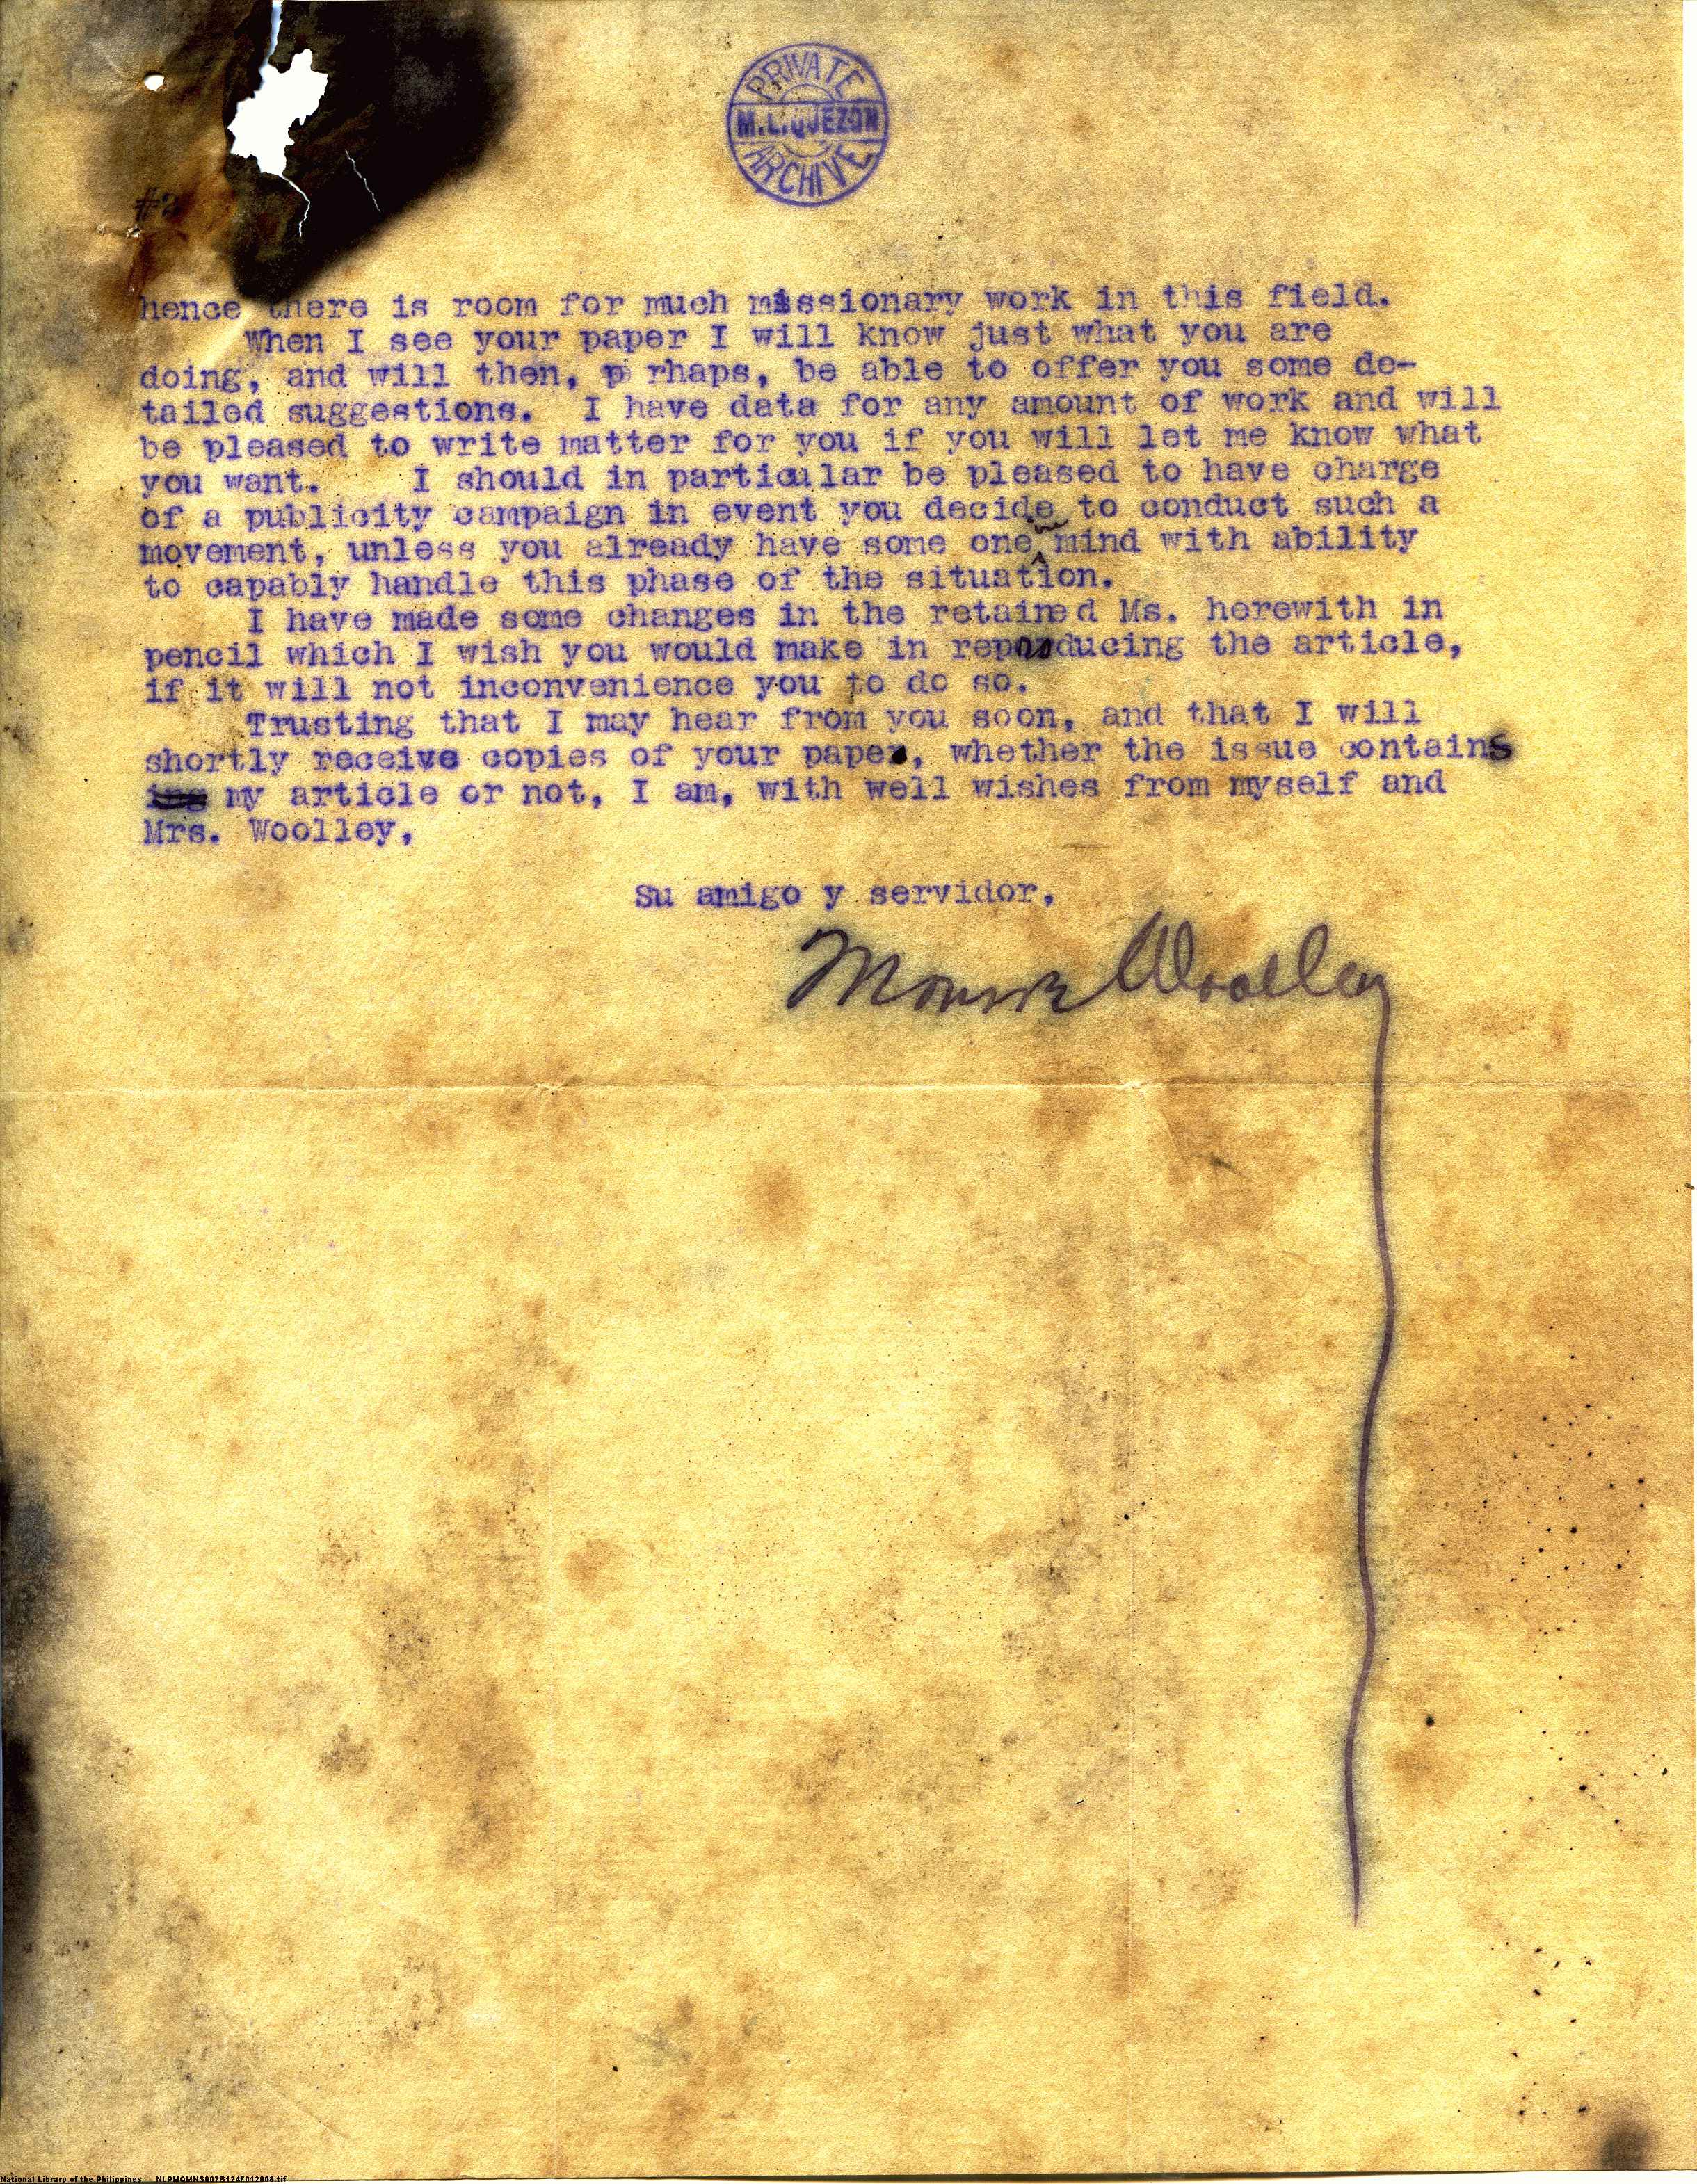 PRIVATE
M.L.QUEZON
ARCHIVE
#2
hence there is room for much missionary work in this field.
When I see your paper I will know just what you are
doing, and will then, p rhaps, be able to offer you some de-
tailed suggestions. I have data for any amount of work and will
be pleased to write matter for you if you will let me know what
you want. I should in particular be pleased to have charge
of a publicity campaign in event you decide to conduct such a
movement, unless you already have some one in mind with ability
to capably handle this phase of the situation.
I have made some changes in the retained Ms. herewith in
pencil which I wish you would make in reproducing the article,
if it will not inconvenience you to do so.
Trusting that I may hear from you soon, and that I will
shortly receive copies of your paper, whether the issue contains
ing my article or not, I am, with well wishes from myself and
Mrs. Woolley,
Su amigo y servidor,
Monroe Woolley
National Library of the Philippines NLPMQMNS007B124F012008.tif